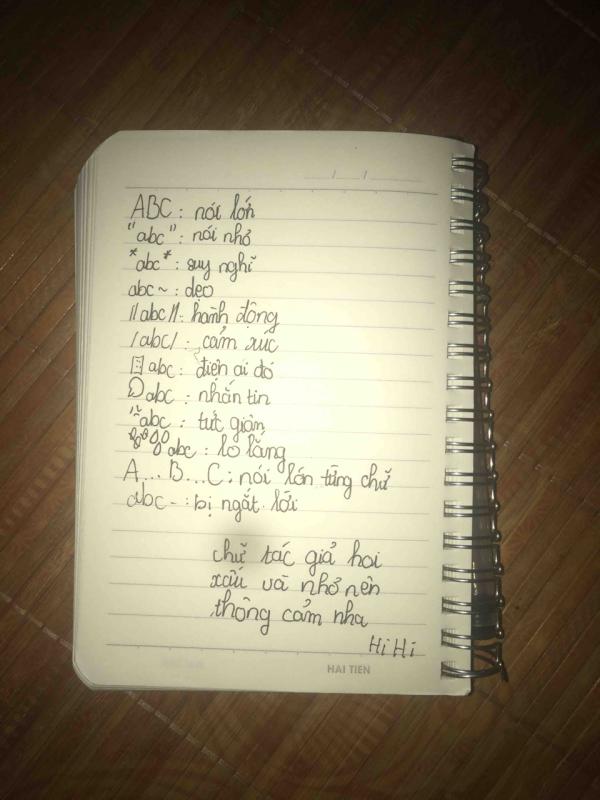 __/__/____
ABC : nói lớn
"abc" : nói nhỏ
*abc* : suy nghĩ
abc ~ : dẹo
//abc//: hành động
/abc/ : cảm xúc
abc : điện ai đó
abc : nhắn tin
abc : tức giận
abc : lo lắng
A...B...C : nói lớn từng chữ
abc - : bị ngắt lời
chữ tác giả hơi
xấu và nhỏ nên
thông cảm nha
Hi Hi
HAI TIEN